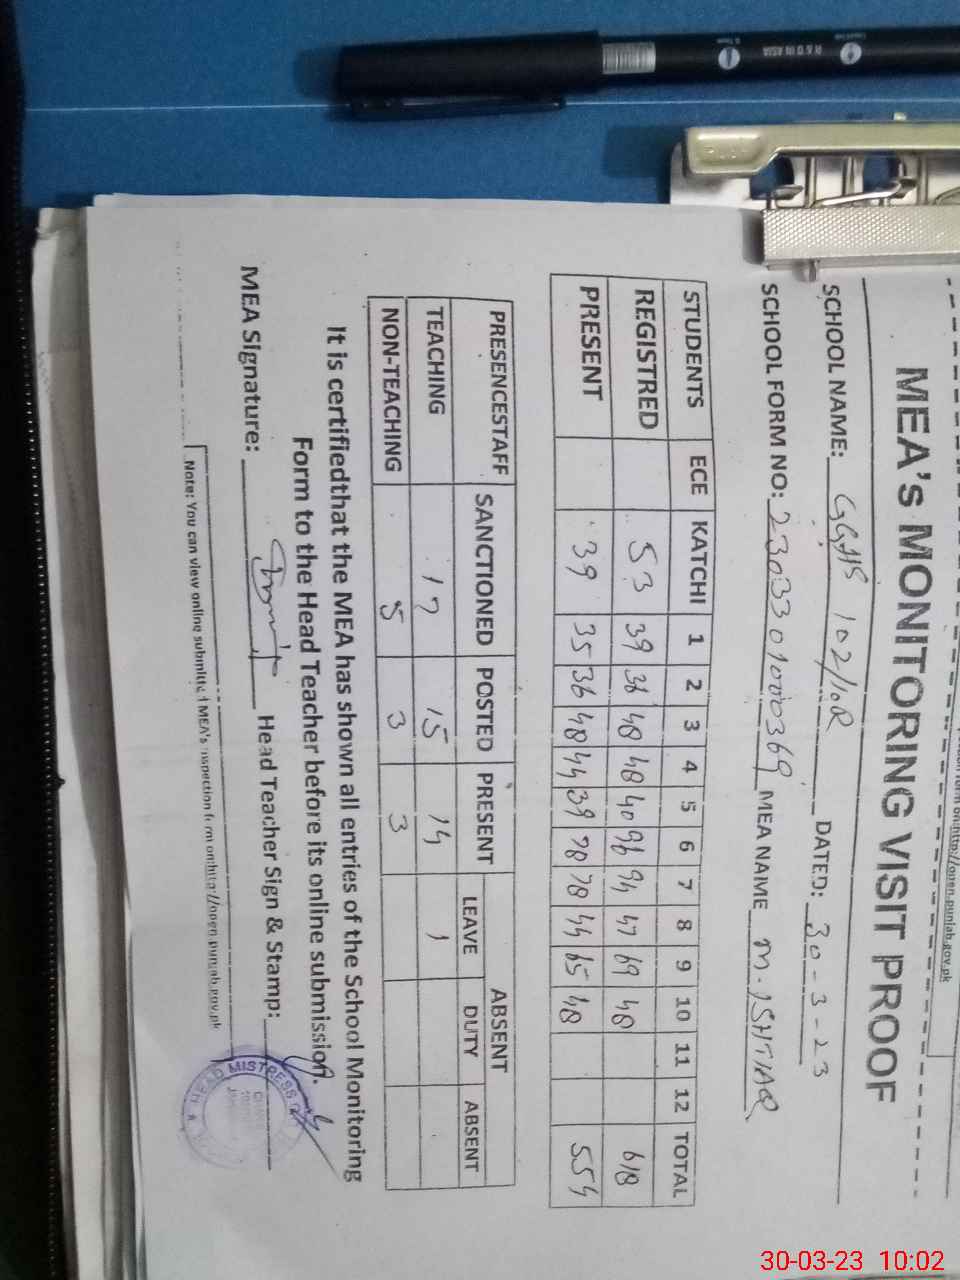 on:http://open.punjab.gov.pk
MEA's MONITORING VISIT PROOF
SCHOOL NAME: GGHS 102/10R DATED: 30-3-23
SCHOOL FORM NO: MEA NAME M.ISHTIAQ
STUDENTS ECE KATCHI 1 2 3 4 5 6 7 8 9 10 11 12 TOTAL
REGISTRED 53 39 36 48 48 40 96 94 47 69 48 618
PRESENT 39 35 36 48 44 39 78 78 44 65 48 554
PRESENCESTAFF SANCTIONED POSTED PRESENT ABSENT
LEAVE DUTY ABSENT
TEACHING 17 15 14 1
NON-TEACHING 5 3 3
It is certifiedthat the MEA has shown all entries of the School Monitoring
Form to the Head Teacher before its online submission.
MEA Signature: Head Teacher Sign & Stamp:
HEAD MISTRESS
Note: You can view online submitted MEA's inspection form on:http://open.punjab.gov.pk
R & D IN ASIA
30-03-23 10:02